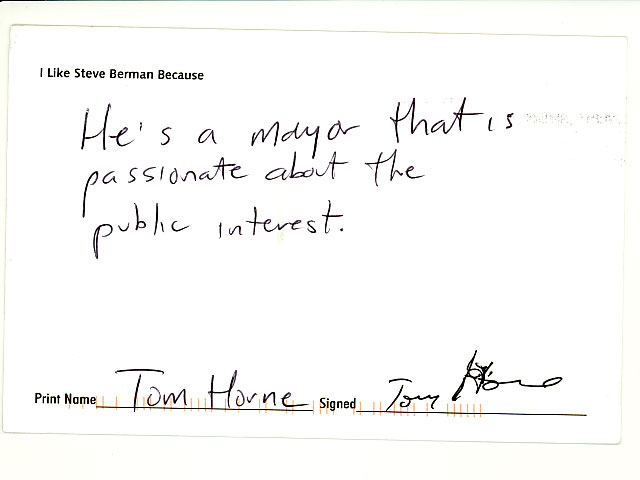 I Like Steve Berman Because
He's a mayor that is
passionate about the
public interest.
Print Name Tom Horne Signed Tom Horne